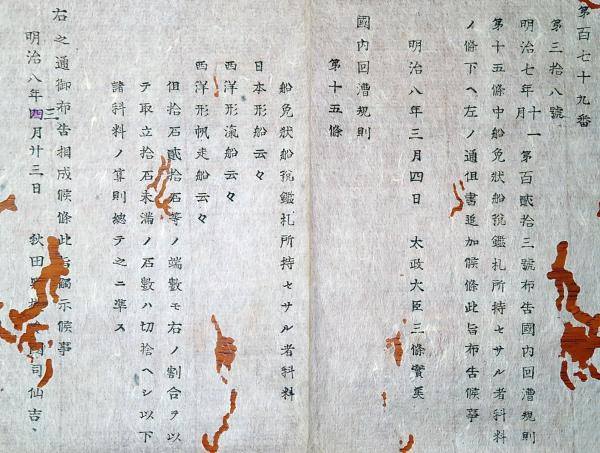 第百七十九番
第三拾八號
明治七年十一月第百貳拾三號布告國内回漕規則
第十五條中船免狀船税鑑札所持セサル者科料
ノ條下ヘ左ノ通但書追加候條此旨布告候事
明治八年三月四日 太政大臣三條實美
國内回漕規則
第十五條
船免狀船税鑑札所持セサル者科料
日本形船云々
西洋形滊船云々
西洋形帆走船云々
但拾石貳拾石等ノ端數モ右ノ割合ヲ以
テ取立拾石未滿ノ石數ハ切捨ヘシ以下
諸科料ノ算則總テ之ニ準ス
右之通御布告相成候條此旨觸示候事
明治八年三月廿三日 秋田 國司仙吉